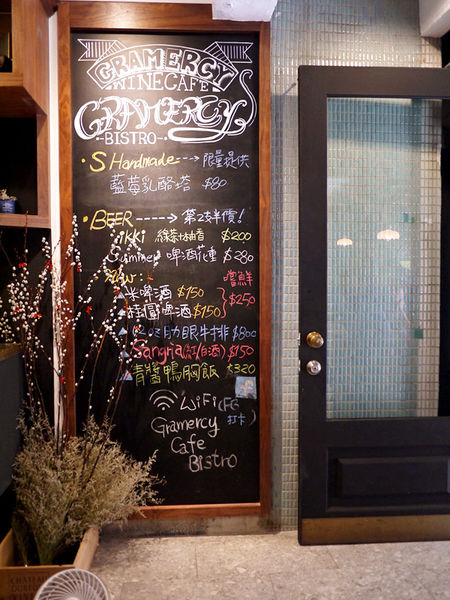 GRAMERCY
WINECAFE
GRAMERCY
BISTRO
• S Handmade ---→ 限量提供
藍莓乳酪塔 $80
• BEER -----→ 第2杯半價!
ikki 綠茶柚香 $200
Summer 啤酒花園 $280
New: 嚐鮮
米啤酒 $150
桂圓啤酒 $150 } $250
12oz 肋眼牛排 $800
Sangria (紅/白酒) $150
青醬鴨胸飯 $320
WiFi (FB
打卡)
Gramercy
Cafe
Bistro